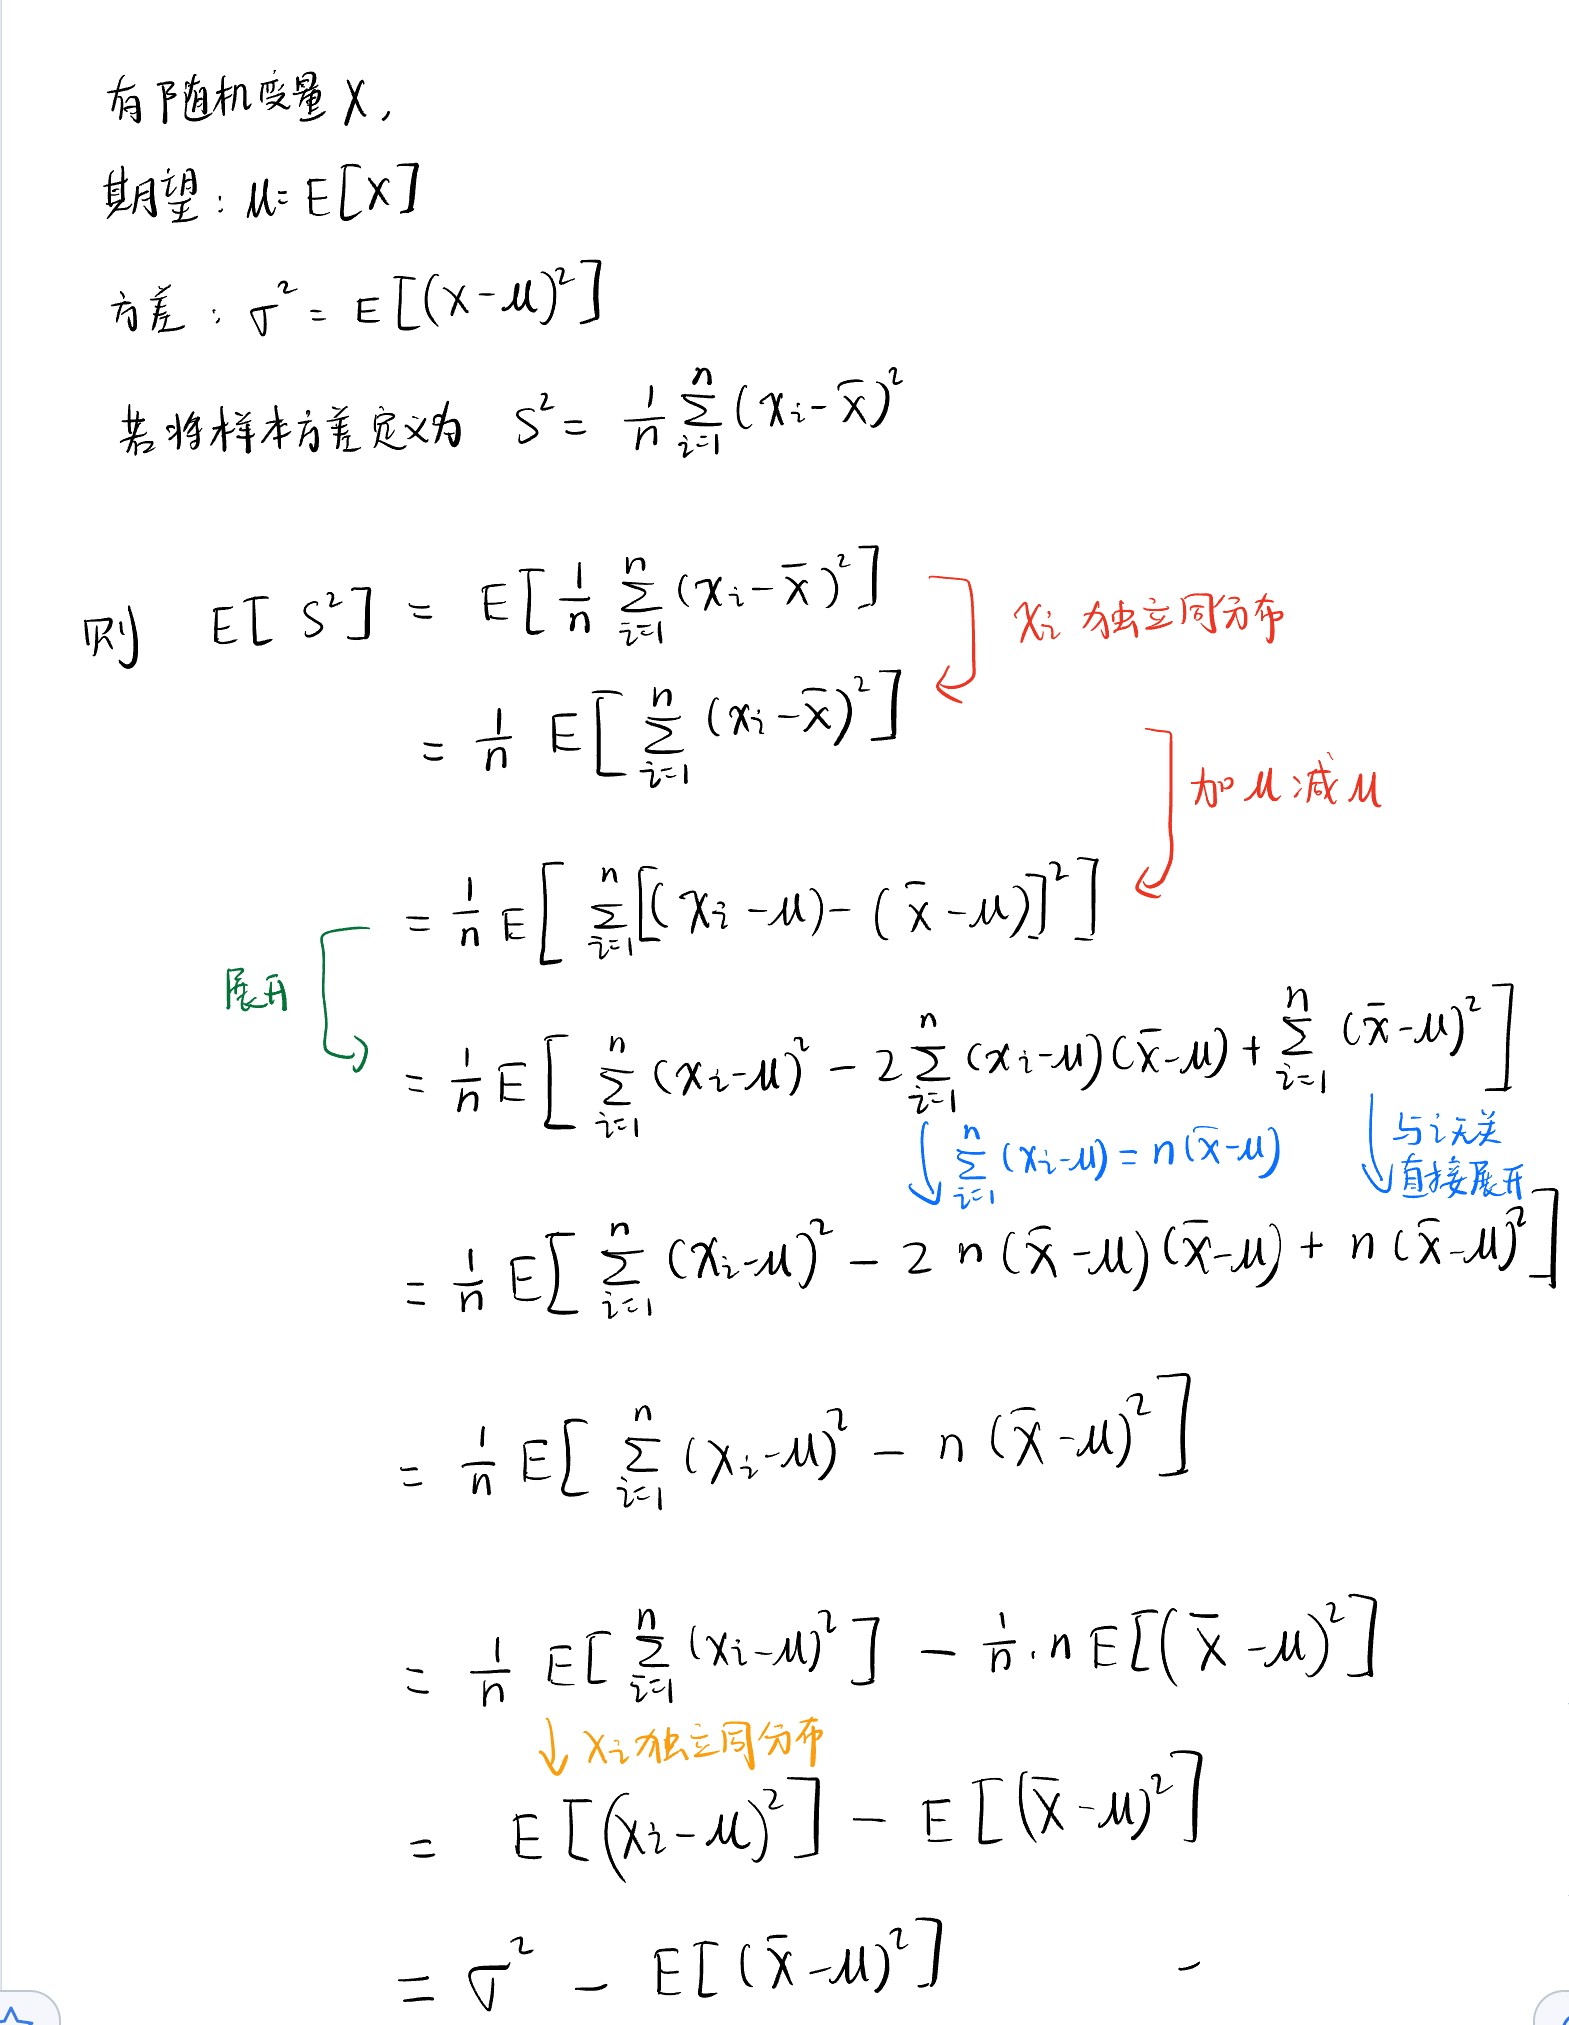 有随机变量 X,
期望: μ = E[X]
方差: σ² = E[(X-μ)²]
若将样本方差定义为 S² = 1/n ∑_{i=1}^{n} (xi - x̄)²
则 E[S²] = E[1/n ∑_{i=1}^{n} (xi - x̄)²]
xi 独立同分布
= 1/n E[∑_{i=1}^{n} (xi - x̄)²]
加μ减μ
= 1/n E[∑_{i=1}^{n} [(xi - μ) - (x̄ - μ)]²]
展开
= 1/n E[∑_{i=1}^{n} (xi - μ)² - 2∑_{i=1}^{n} (xi - μ)(x̄ - μ) + ∑_{i=1}^{n} (x̄ - μ)²]
∑_{i=1}^{n} (xi - μ) = n(x̄ - μ) 与i无关
直接展开
= 1/n E[∑_{i=1}^{n} (xi - μ)² - 2 n(x̄ - μ)(x̄ - μ) + n(x̄ - μ)²]
= 1/n E[∑_{i=1}^{n} (xi - μ)² - n(x̄ - μ)²]
= 1/n E[∑_{i=1}^{n} (xi - μ)²] - 1/n · n E[(x̄ - μ)²]
xi 独立同分布
= E[(xi - μ)²] - E[(x̄ - μ)²]
= σ² - E[(x̄ - μ)²] -